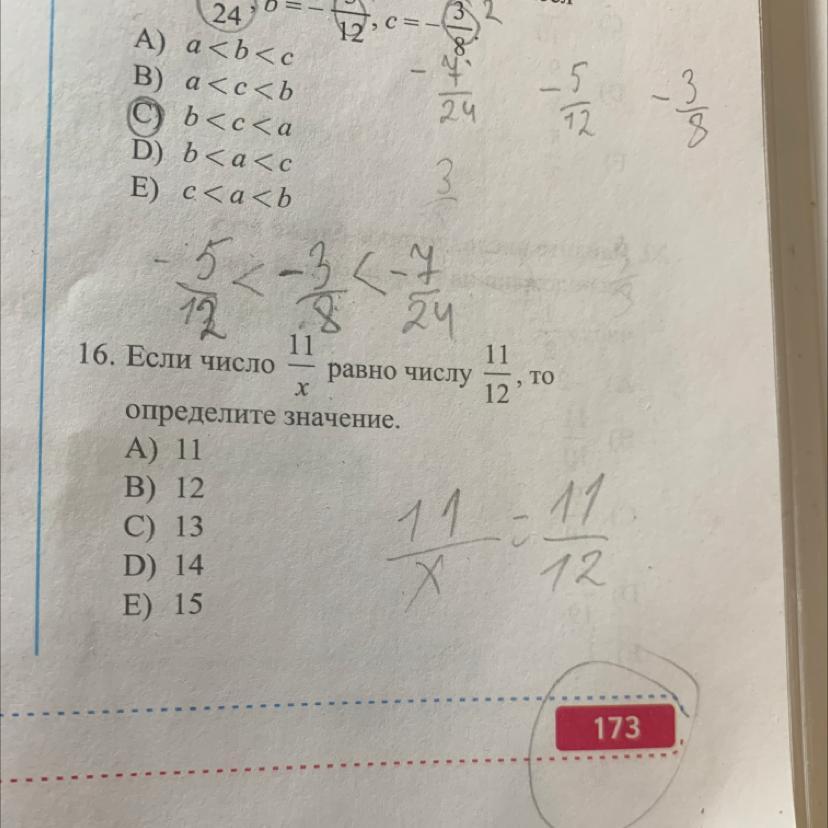 24, b = - /12, c = - 3/8, 2
A) a < b < c
B) a < c < b
C) b < c < a
D) b < a < c
E) c < a < b
- 7/24 - 5/12 - 3/8
3
- 5/12 < - 3/8 < - 7/24
16. Если число 11/x равно числу 11/12, то
определите значение.
A) 11
B) 12
C) 13
D) 14
E) 15
11/x = 11/12
173